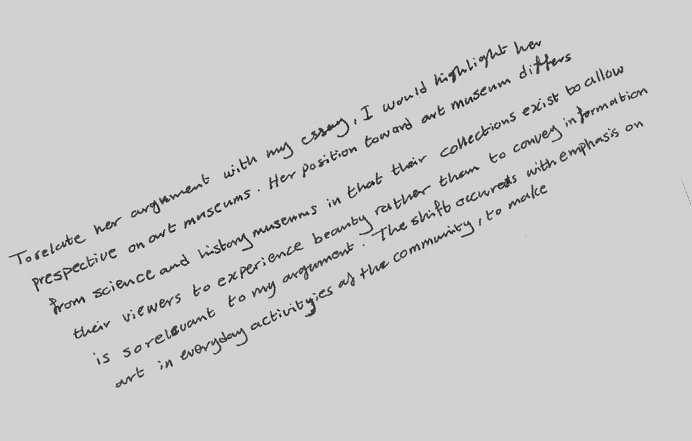 To relate her argument with my essay, I would highlight her
prespective on art museums. Her position toward art museum differs
from science and history museums in that their collections exist to allow
their viewers to experience beauty rather than to convey information
is so relevant to my argument. The shift occureds with emphasis on
art in everyday activityies as the community, to make